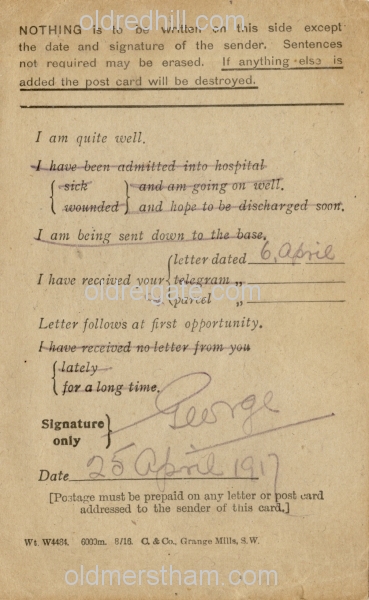 www.oldredhill.com
NOTHING is to be written on this side except
the date and signature of the sender. Sentences
not required may be erased. If anything else is
added the post card will be destroyed.
I am quite well.
I have been admitted into hospital
{ sick } and am going on well.
{ wounded } and hope to be discharged soon.
I am being sent down to the base.
{ letter dated 6, April
I have received your { telegram „
{ parcel „
www.oldreigate.com
Letter follows at first opportunity.
I have received no letter from you
{ lately
{ for a long time.
Signature only } George
Date 25 April 1917
[Postage must be prepaid on any letter or post card
addressed to the sender of this card.]
Wt. W4484. 6000m. 8/16. C. & Co., Grange Mills, S.W.
www.oldmerstham.com